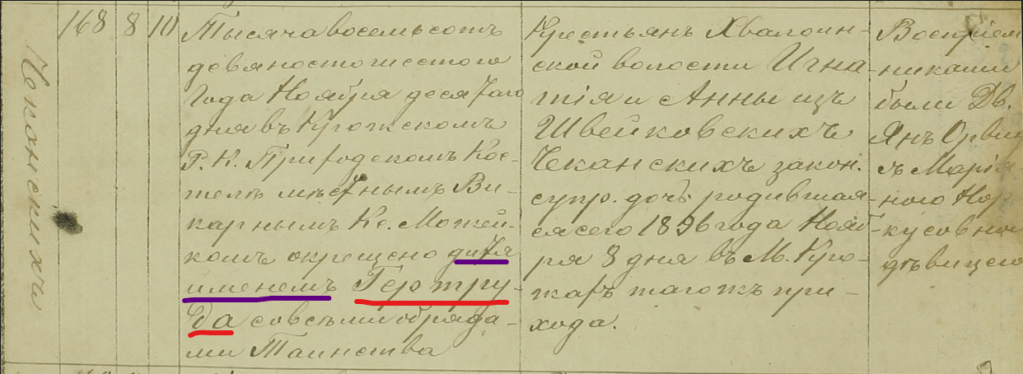 Чеканскихъ
168 8 10
Тысяча восемьсотъ
девяностошестого
года Ноября десятаго
дня въ Крожскомъ
Р. К. Приходскомъ Кос-
телѣ мѣстнымъ Ви-
карнымъ Кс. Можей-
комъ окрещено дитя
именемъ Гертру-
да со всѣми обряда-
ми Таинства
Крестьянъ Хвалоин-
ской волости Игна-
тія и Анны изъ
Швейковскихъ
Чеканскихъ закон.
супр. дочь родившая-
ся сего 1896 года Нояб-
ря 8 дня въ М. Кро-
жахъ тогожъ при-
хода.
Воспріем-
никами
были Дв.
Янъ
съ
дѣвицею